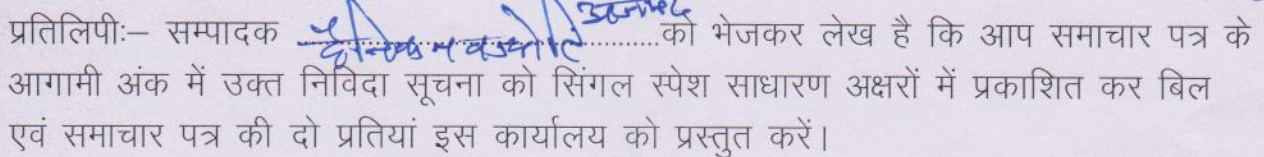 प्रतिलिपीः– सम्पादक दैनिक नवज्योति अजमेर को भेजकर लेख है कि आप समाचार पत्र के
आगामी अंक में उक्त निविदा सूचना को सिंगल स्पेश साधारण अक्षरों में प्रकाशित कर बिल
एवं समाचार पत्र की दो प्रतियां इस कार्यालय को प्रस्तुत करें।